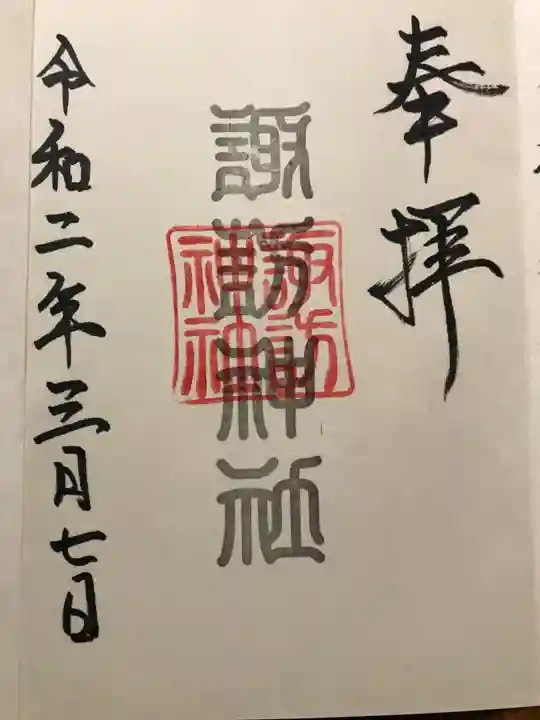 奉拝
諏訪神社
諏訪神社
令和二年三月七日